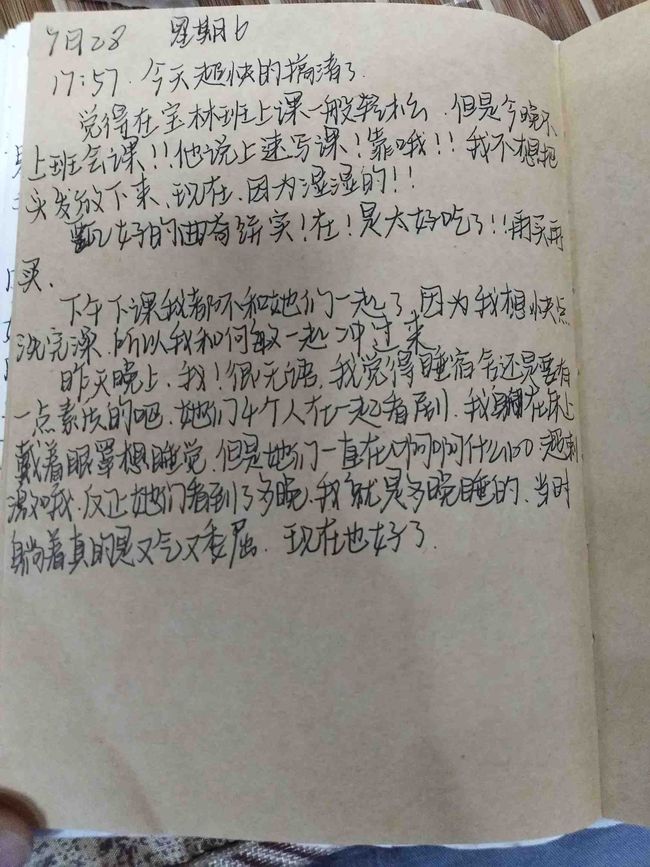 9月28 星期6
17:57. 今天超快的搞渚了.
觉得在宝林班上课一般轻松, 但是今晚不
上班会课!!他说上速写课!靠哦!!我不想把
头发放下来、现在, 因为湿湿的!!
好的曲奇饼实!在!是太好吃了!!再买再
买.
下午下课我都不和她们一起了, 因为我想快点
洗完澡, 所以我和何敏一起冲过来
昨天晚上, 我!很无语, 我觉得睡宿舍还是要有
一点素质的吧, 她们4个人在一起看剧, 我躺在床上
戴着眼罩想睡觉, 但是她们一直在啊啊啊什么 超刺
激哦, 反正她们看到了多晚, 我就是多晚睡的, 当时
躺着真的是又气又委屈. 现在也好了.